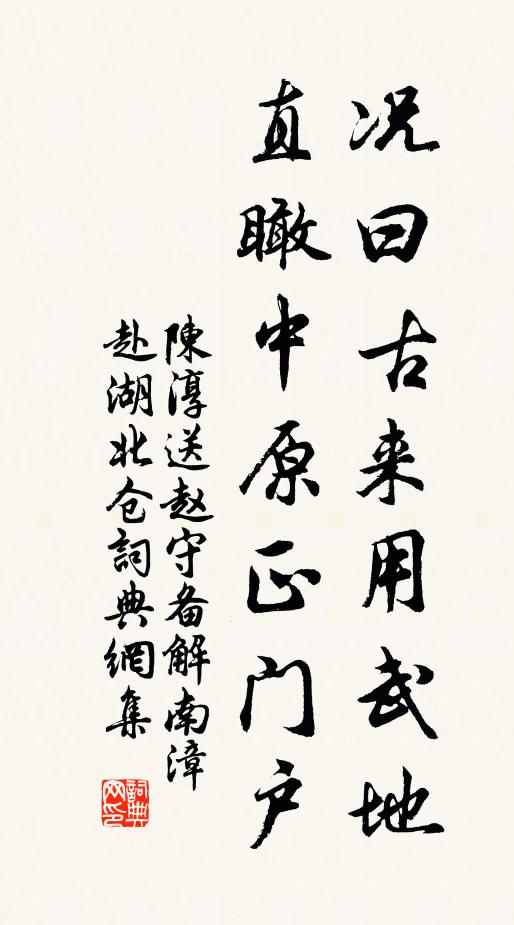 况曰古来用武地
直瞰中原正门户
陳淳送赵守备解南漳
赴湖北仓詞典網集
詞典网印